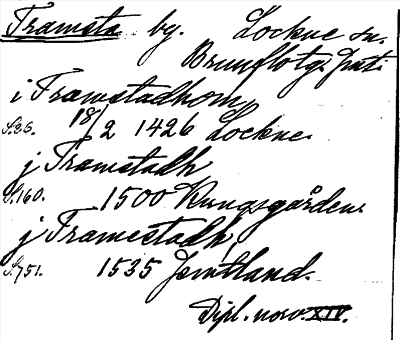 Tramsta by. Lockne sn.
Brunflo tg. Jmtl.
i Tramstadhom
S. 25. 18/2 1426 Lockne.
j Tramstadh
S. 160. 1500 Kungsgården.
j Tramestadh
S. 751. 1535 Jemtland.
Dipl. norv. XIV.